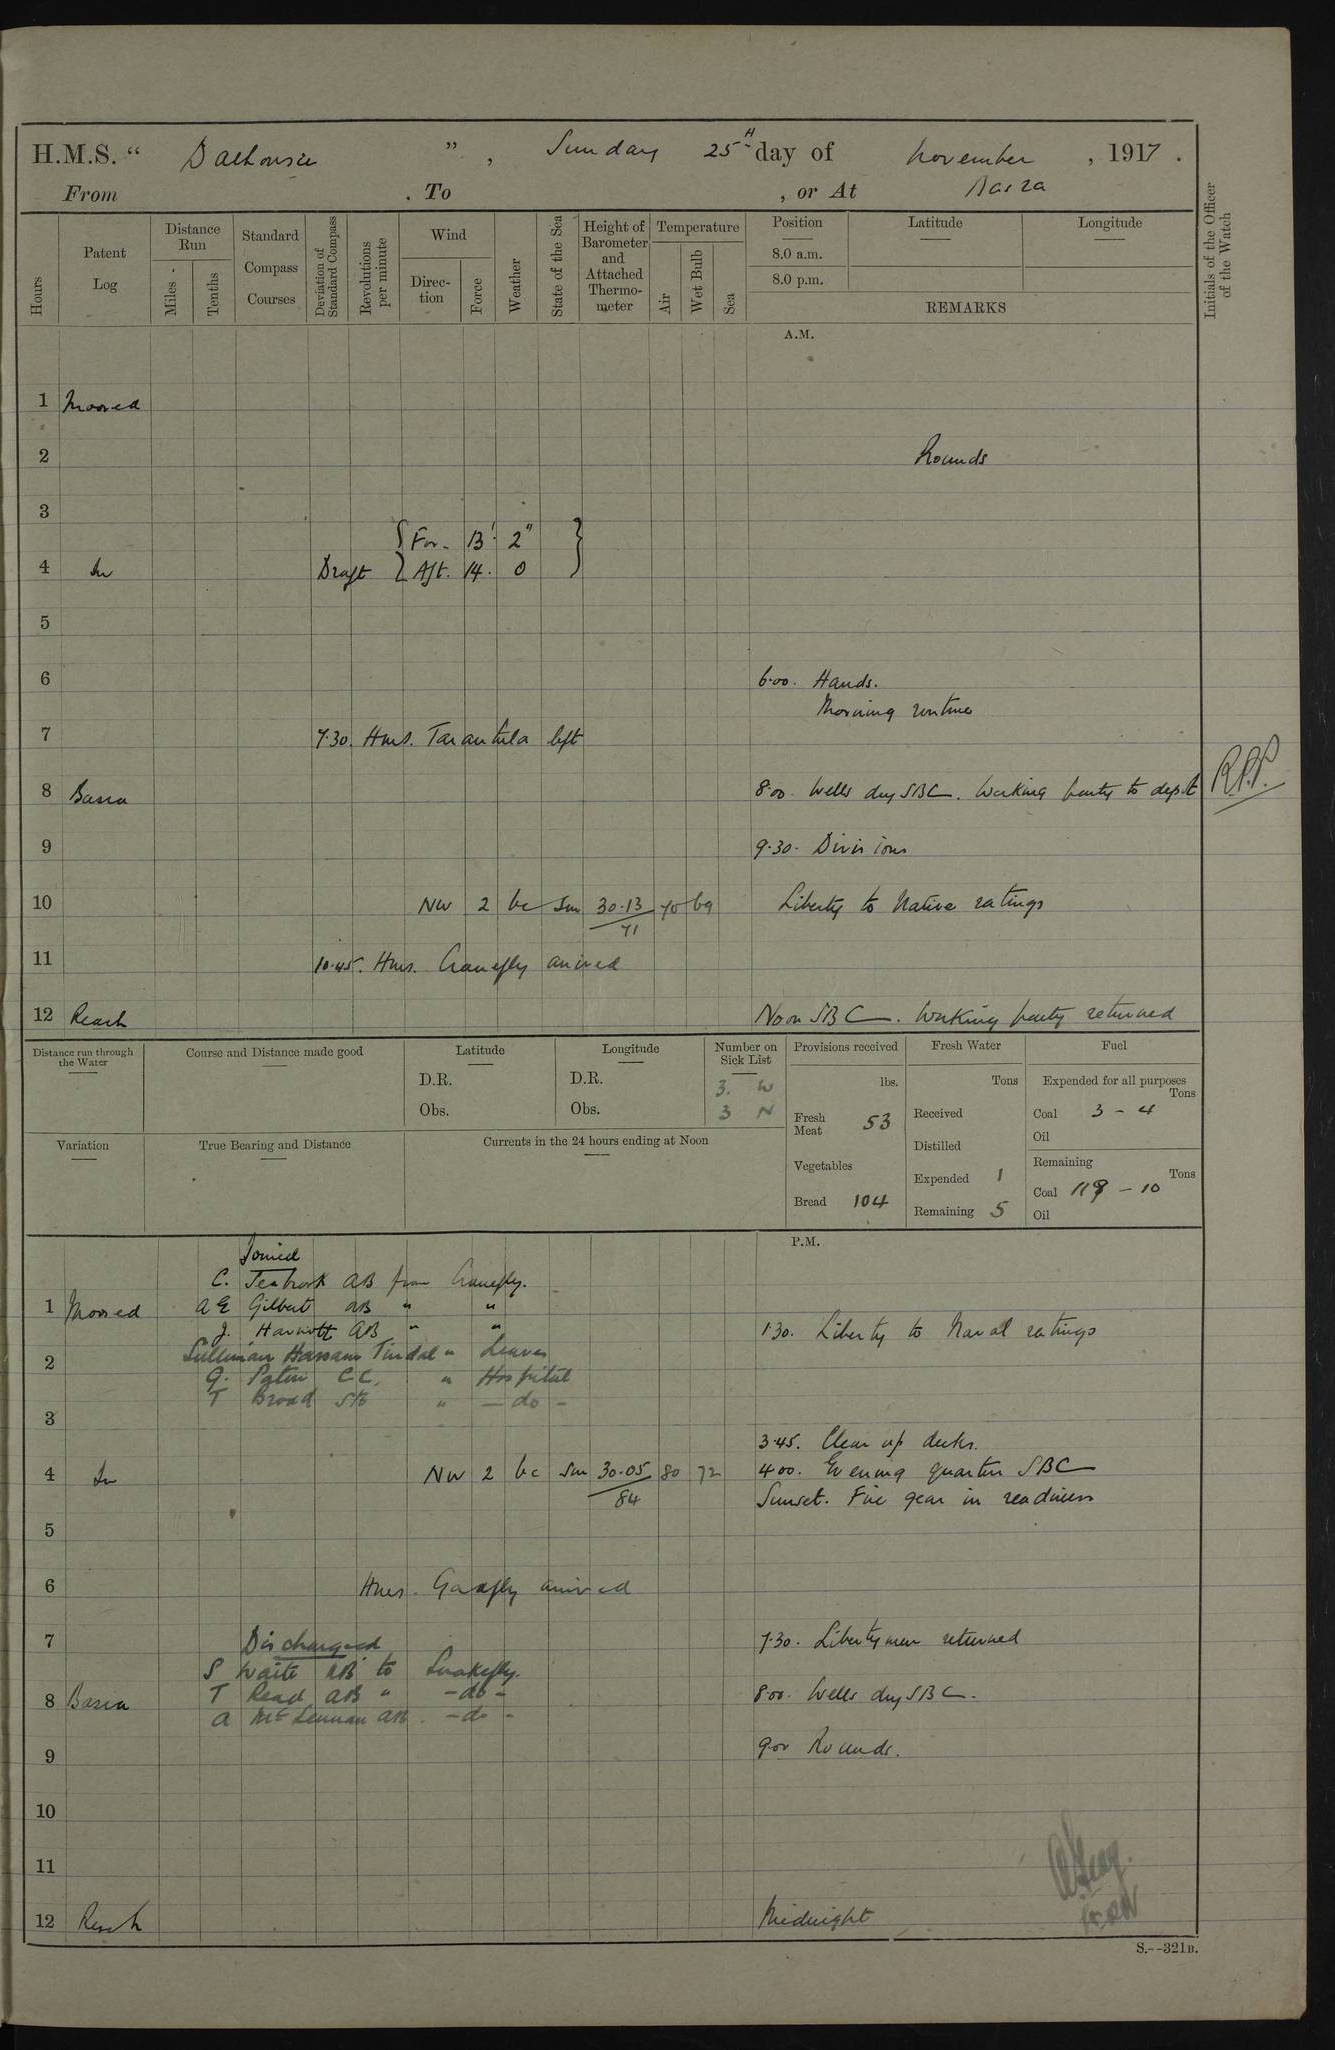 H.M.S. “ Dalhousie ” , Sunday 25th day of November , 1917 .
From . To , or At Basra
Hours
Patent Log
Distance Run
Miles
Tenths
Standard Compass Courses
Deviation of Standard Compass
Revolutions per minute
Wind
Direc-tion
Force
Weather
State of the Sea
Height of Barometer and Attached Thermo-meter
Temperature
Air
Wet Bulb
Sea
Position
8.0 a.m.
8.0 p.m.
Latitude
Longitude
REMARKS
Initials of the Officer of the Watch
A.M.
1 Moored
2 Rounds
3
{ For. 13' 2" }
4 In Draft { Aft. 14. 0 }
5
6 6.00. Hands.
Morning routine
7 7.30. Hms. Tarantula left
8 Basra 8.00. Wells dry SBC. Working party to depot
R.P.P.
9 9.30. Divisions
10 NW 2 bc Sm 30.13 70 69 Liberty to Native ratings
71
11 10.45. Hms. Cranefly arrived
12 Reach Noon SBC. Working party returned
Distance run through the Water
Course and Distance made good
Latitude
D.R.
Obs.
Longitude
D.R.
Obs.
Number on Sick List
3. W
3 N
Provisions received
lbs.
Fresh Meat 53
Vegetables
Bread 104
Fresh Water
Tons
Received
Distilled
Expended 1
Remaining 5
Fuel
Expended for all purposes
Tons
Coal 3 - 4
Oil
Remaining
Tons
Coal 119 - 10
Oil
Variation
True Bearing and Distance
Currents in the 24 hours ending at Noon
P.M.
Joined
C. AB from Cranefly.
1 Moored A E Gilbert AB " "
J. AB " " 1.30. Liberty to Naval ratings
Sulliman Hassam Tindal " Leaves
2
G. CC. " Hospital
T Broad Sto " - do -
3
3.45. Clear up decks.
4 In NW 2 bc Sm 30.05 80 72 4.00. Evening quarters SBC
84
Sunset. Fire gear in readiness
5
6 Hms. Gadfly arrived
7 Discharged 7.30. Libertymen returned
S Waite AB to Snakefly.
8 Basra T Read AB " - do - 8.00. Wells dry SBC.
A McLennan AB . - do -
9 9.00 Rounds.
10
11
12 Reach Midnight
S.--321B.